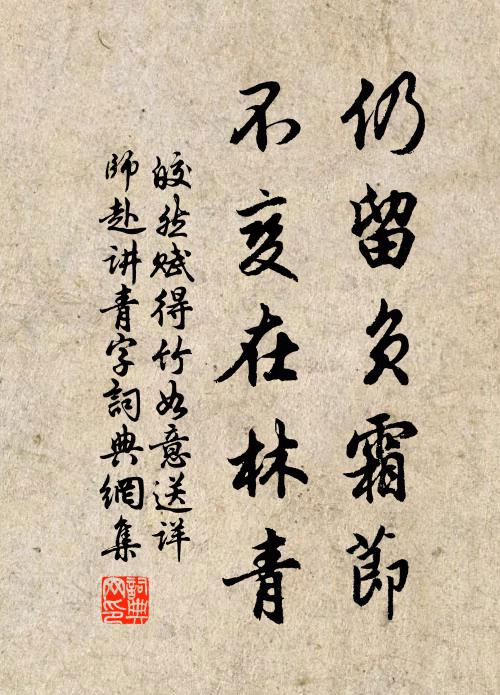 仍留负霜節
不变在林青
皎然赋得竹如意送详
师赴讲青字詞典網集
詞典网印